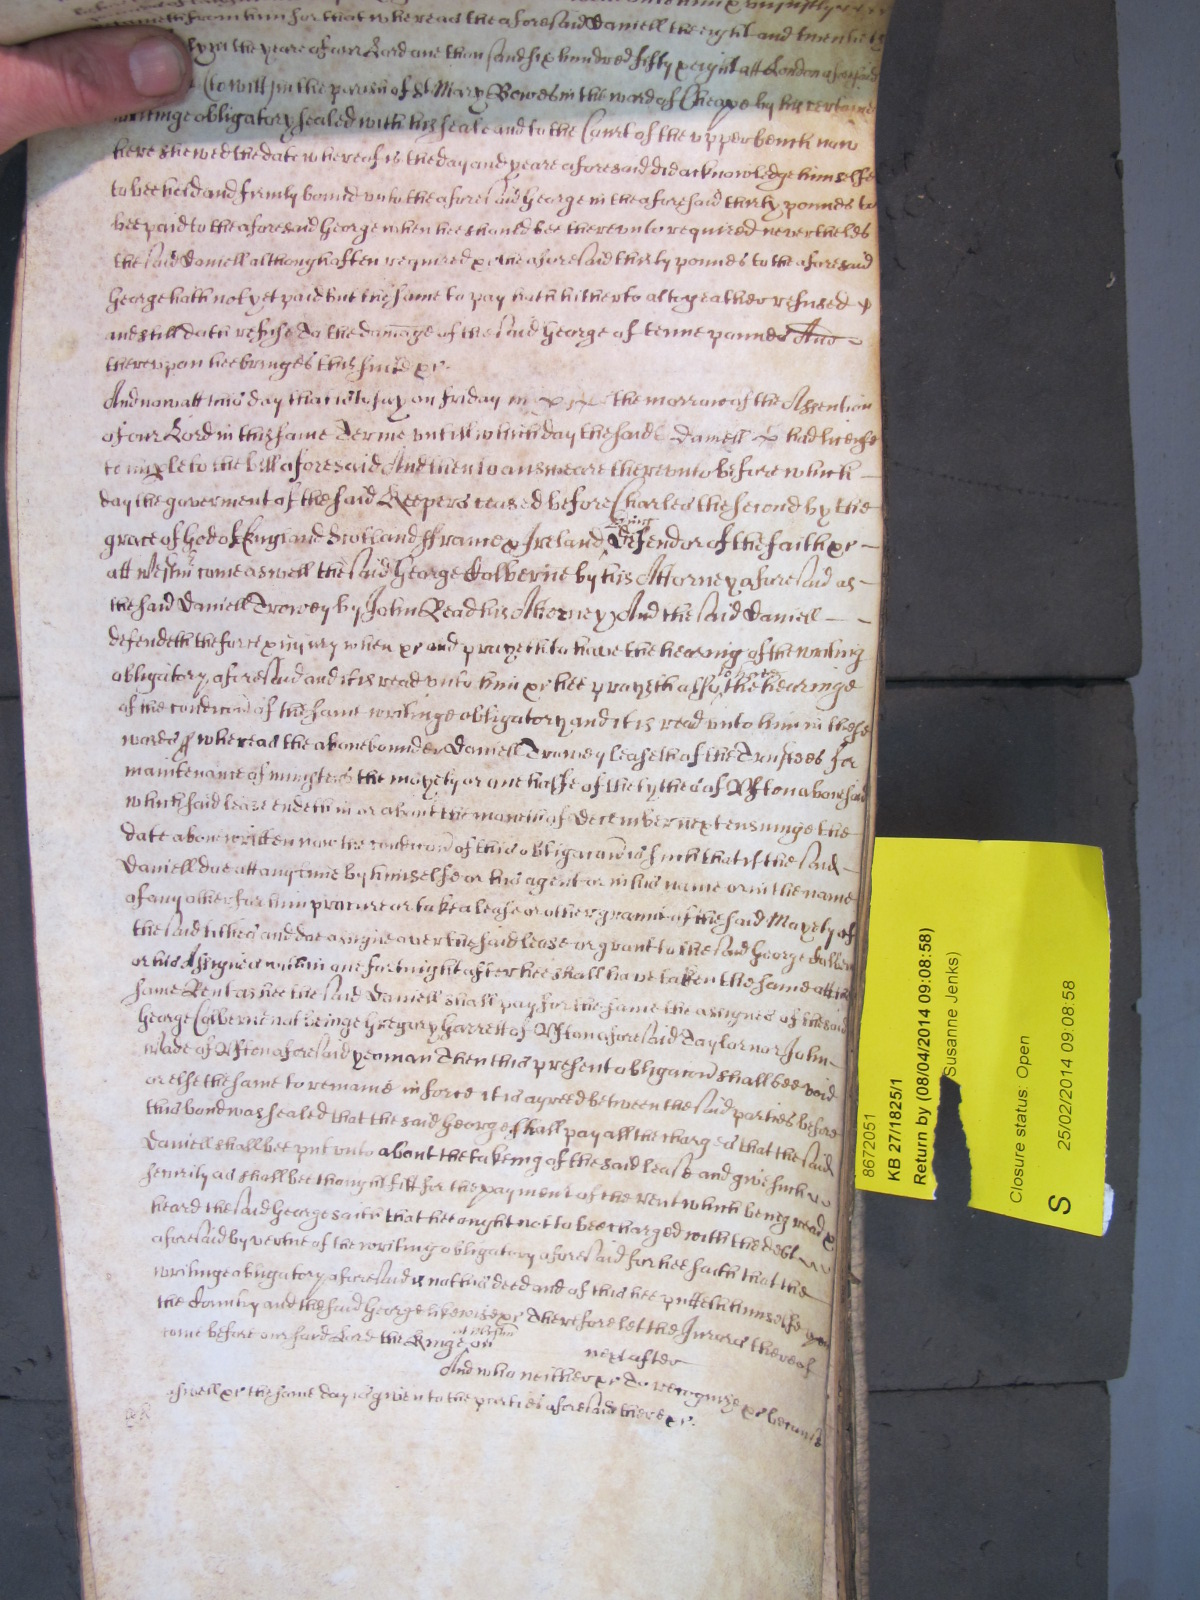 from him for that whereas the aforesaid Daniell the eight and twentieth
in the yeare of our Lord one thousand six hundred fifty & eight att London aforesaid
(to witt) in the parish of St Mary Bowes in the ward of Cheape by his certaine
writinge obligatory sealed with his seale and to the Court of the upper bench now
here shewed the date whereof is the day and yeare aforesaid did acknowledge himselfe
to bee held and firmly bound unto the aforesaid George in the aforesaid thirty pounds to
bee paid to the aforesaid George when hee should bee thereunto required neverthelés
the said Daniell although often required &c the aforesaid thirty pounds to the aforesaid
George hath not yet paid but the same to pay hath hitherto altogeather refused &
and still doth refuse To the damage of the said George of tenne pounds And
thereupon hee bringes this suite &c.
And now att this day that is to say on Friday the morrow of the Assention
of our Lord in this same Terme untill which day the said Daniell had license
to imple to the bill aforesaid And then to answeare thereunto before which
day the goverment of the said Keepers ceased before Charles the second by the
grace of God of England Scotland ffrance & Ireland King Defendor of the faith &c
att Westm̃ come aswell the said George Colberne by his Attorney aforesaid as
the said Daniell Trowey by John Read his Attorney And the said Daniell
defendeth the force & iniury when &c and prayeth to have the hearing of the writing
obligatory aforesaid and it is read unto him &c hee prayeth also to have the hearinge
of the condicõn of the same writinge obligatory and it is read unto him in these
words ss whereas the above bounder Daniell Trowey leaseth of the Trustees for
maintenance of ministers the moyety or one halfe of the tythes of Ufton abovesaid
which said lease endeth in or about the moneth of December next ensuinge the
date above written now the condicõn of this obligacõn is such that if the said
Daniell doe att any time by himselfe or his agent or in his name or in the name
of any other for him procure or take a lease or other graunt of the said Moyety of
the said tithes and doe assigne over the said lease or grant to the said George Colberne
or his Assignes within one fortnight after hee shall have taken the same att the
same Rent as hee the said Daniell shall pay for the same the assignes of the said
George Colberne not beinge Gregory Garrett of Ufton aforesaid Taylor nor John
Wade of Ufton aforesaid yeoman Then this present obligacõn shall bee void
or else the same to remaine in force it is agreed betweene the said parties before
this bond was sealed that the said George shall pay all the charges that the said
Daniell shall bee put unto about the takeing of the said lease and give such
security as shall bee thought fitt for the payment of the rent which being read &
heard the said George saith that hee ought not to bee charged with the debt
aforesaid by vertue of the writing obligatory aforesaid for hee saith that the
writinge obligatory aforesaid is not his deed and of this hee putteth himselfe upon
the Country and the said George likewise &c Therefore let the Jurors thereof
come before our said Lord the Kinge att Westm̃ on next after
And who neither &c To recognize &c because
aswell &c the same day is given to the parties aforesaid there &c.
8672051
KB 27/1825/1
Return by (08/04/2014 09:08:58)
Susanne Jenks)
Closure status: Open
S 25/02/2014 09:08:58